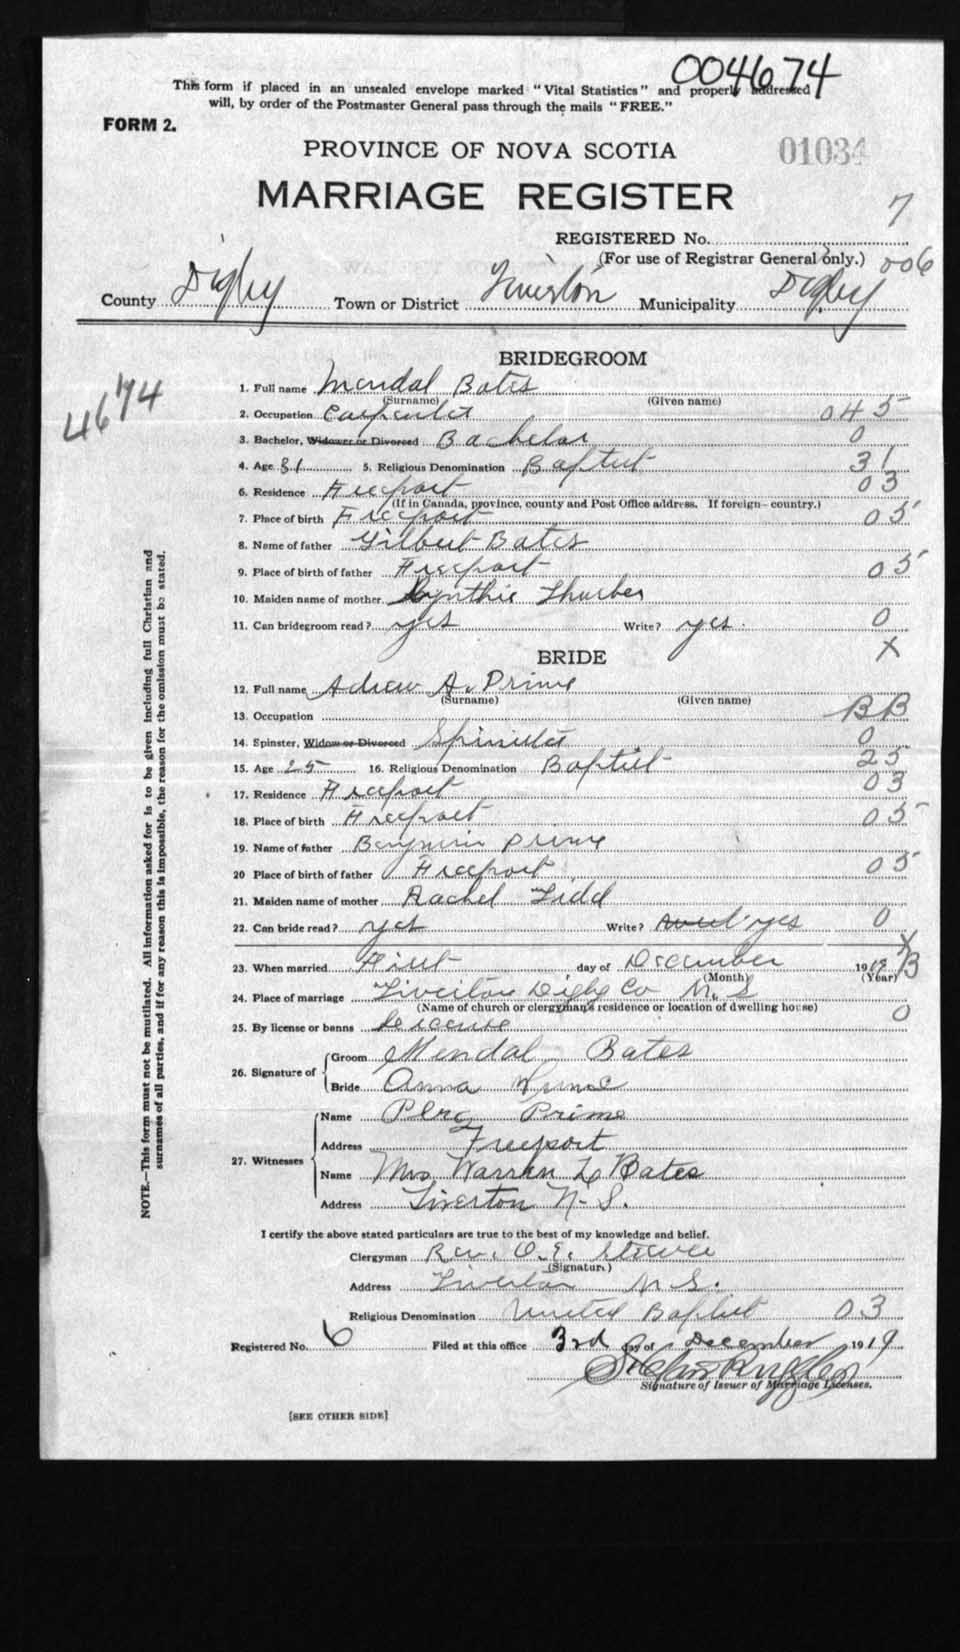 004674
This form if placed in an unsealed envelope marked "Vital Statistics" and properly addressed
will, by order of the Postmaster General pass through the mails "FREE."
FORM 2.
PROVINCE OF NOVA SCOTIA
01034
MARRIAGE REGISTER
7
REGISTERED No.
(For use of Registrar General only.) 006
County Digby Town or District Tiverton Municipality Digby
4674
BRIDEGROOM
1. Full name Mendal Bates
(Surname) (Given name)
2. Occupation Carpenter 045
3. Bachelor, Widower or Divorced Bachelor 0
4. Age 31 5. Religious Denomination Baptist 31
6. Residence Freeport 03
(If in Canada, province, county and Post Office address. If foreign- country.)
7. Place of birth Freeport 05
8. Name of father Gilbert Bates
9. Place of birth of father Freeport 05
10. Maiden name of mother Cynthie Thurber
11. Can bridegroom read? yes Write? yes. 0
X
BRIDE
12. Full name A. Prime
(Surname) (Given name)
13. Occupation BB
14. Spinster, Widow or Divorced Spinster 0
15. Age 25 16. Religious Denomination Baptist 25
17. Residence Freeport 03
18. Place of birth Freeport 05
19. Name of father Benjamin Prime
20 Place of birth of father Freeport 05
21. Maiden name of mother Rachel Tidd
22. Can bride read? yes Write? yes 0
X
23. When married First day of December 1919 B
(Month) (Year)
24. Place of marriage Tiverton Digby Co N. S
(Name of church or clergyman's residence or location of dwelling house)
25. By license or banns License 0
26. Signature of Groom Mendal Bates
Bride Anna Prime
27. Witnesses Name Prime
Address Freeport
Name Mrs Warren L Bates
Address Tiverton N-S.
I certify the above stated particulars are true to the best of my knowledge and belief.
Clergyman Rev. O. E. Steeves
(Signature)
Address Tiverton N. S.
Religious Denomination United Baptist 03
Registered No. 6 Filed at this office 3rd day of December 1919
Signature of Issuer of Marriage Licenses.
[SEE OTHER SIDE]
NOTE.—This form must not be mutilated. All information asked for is to be given including full Christian and
surnames of all parties, and if for any reason this is impossible, the reason for the omission must be stated.